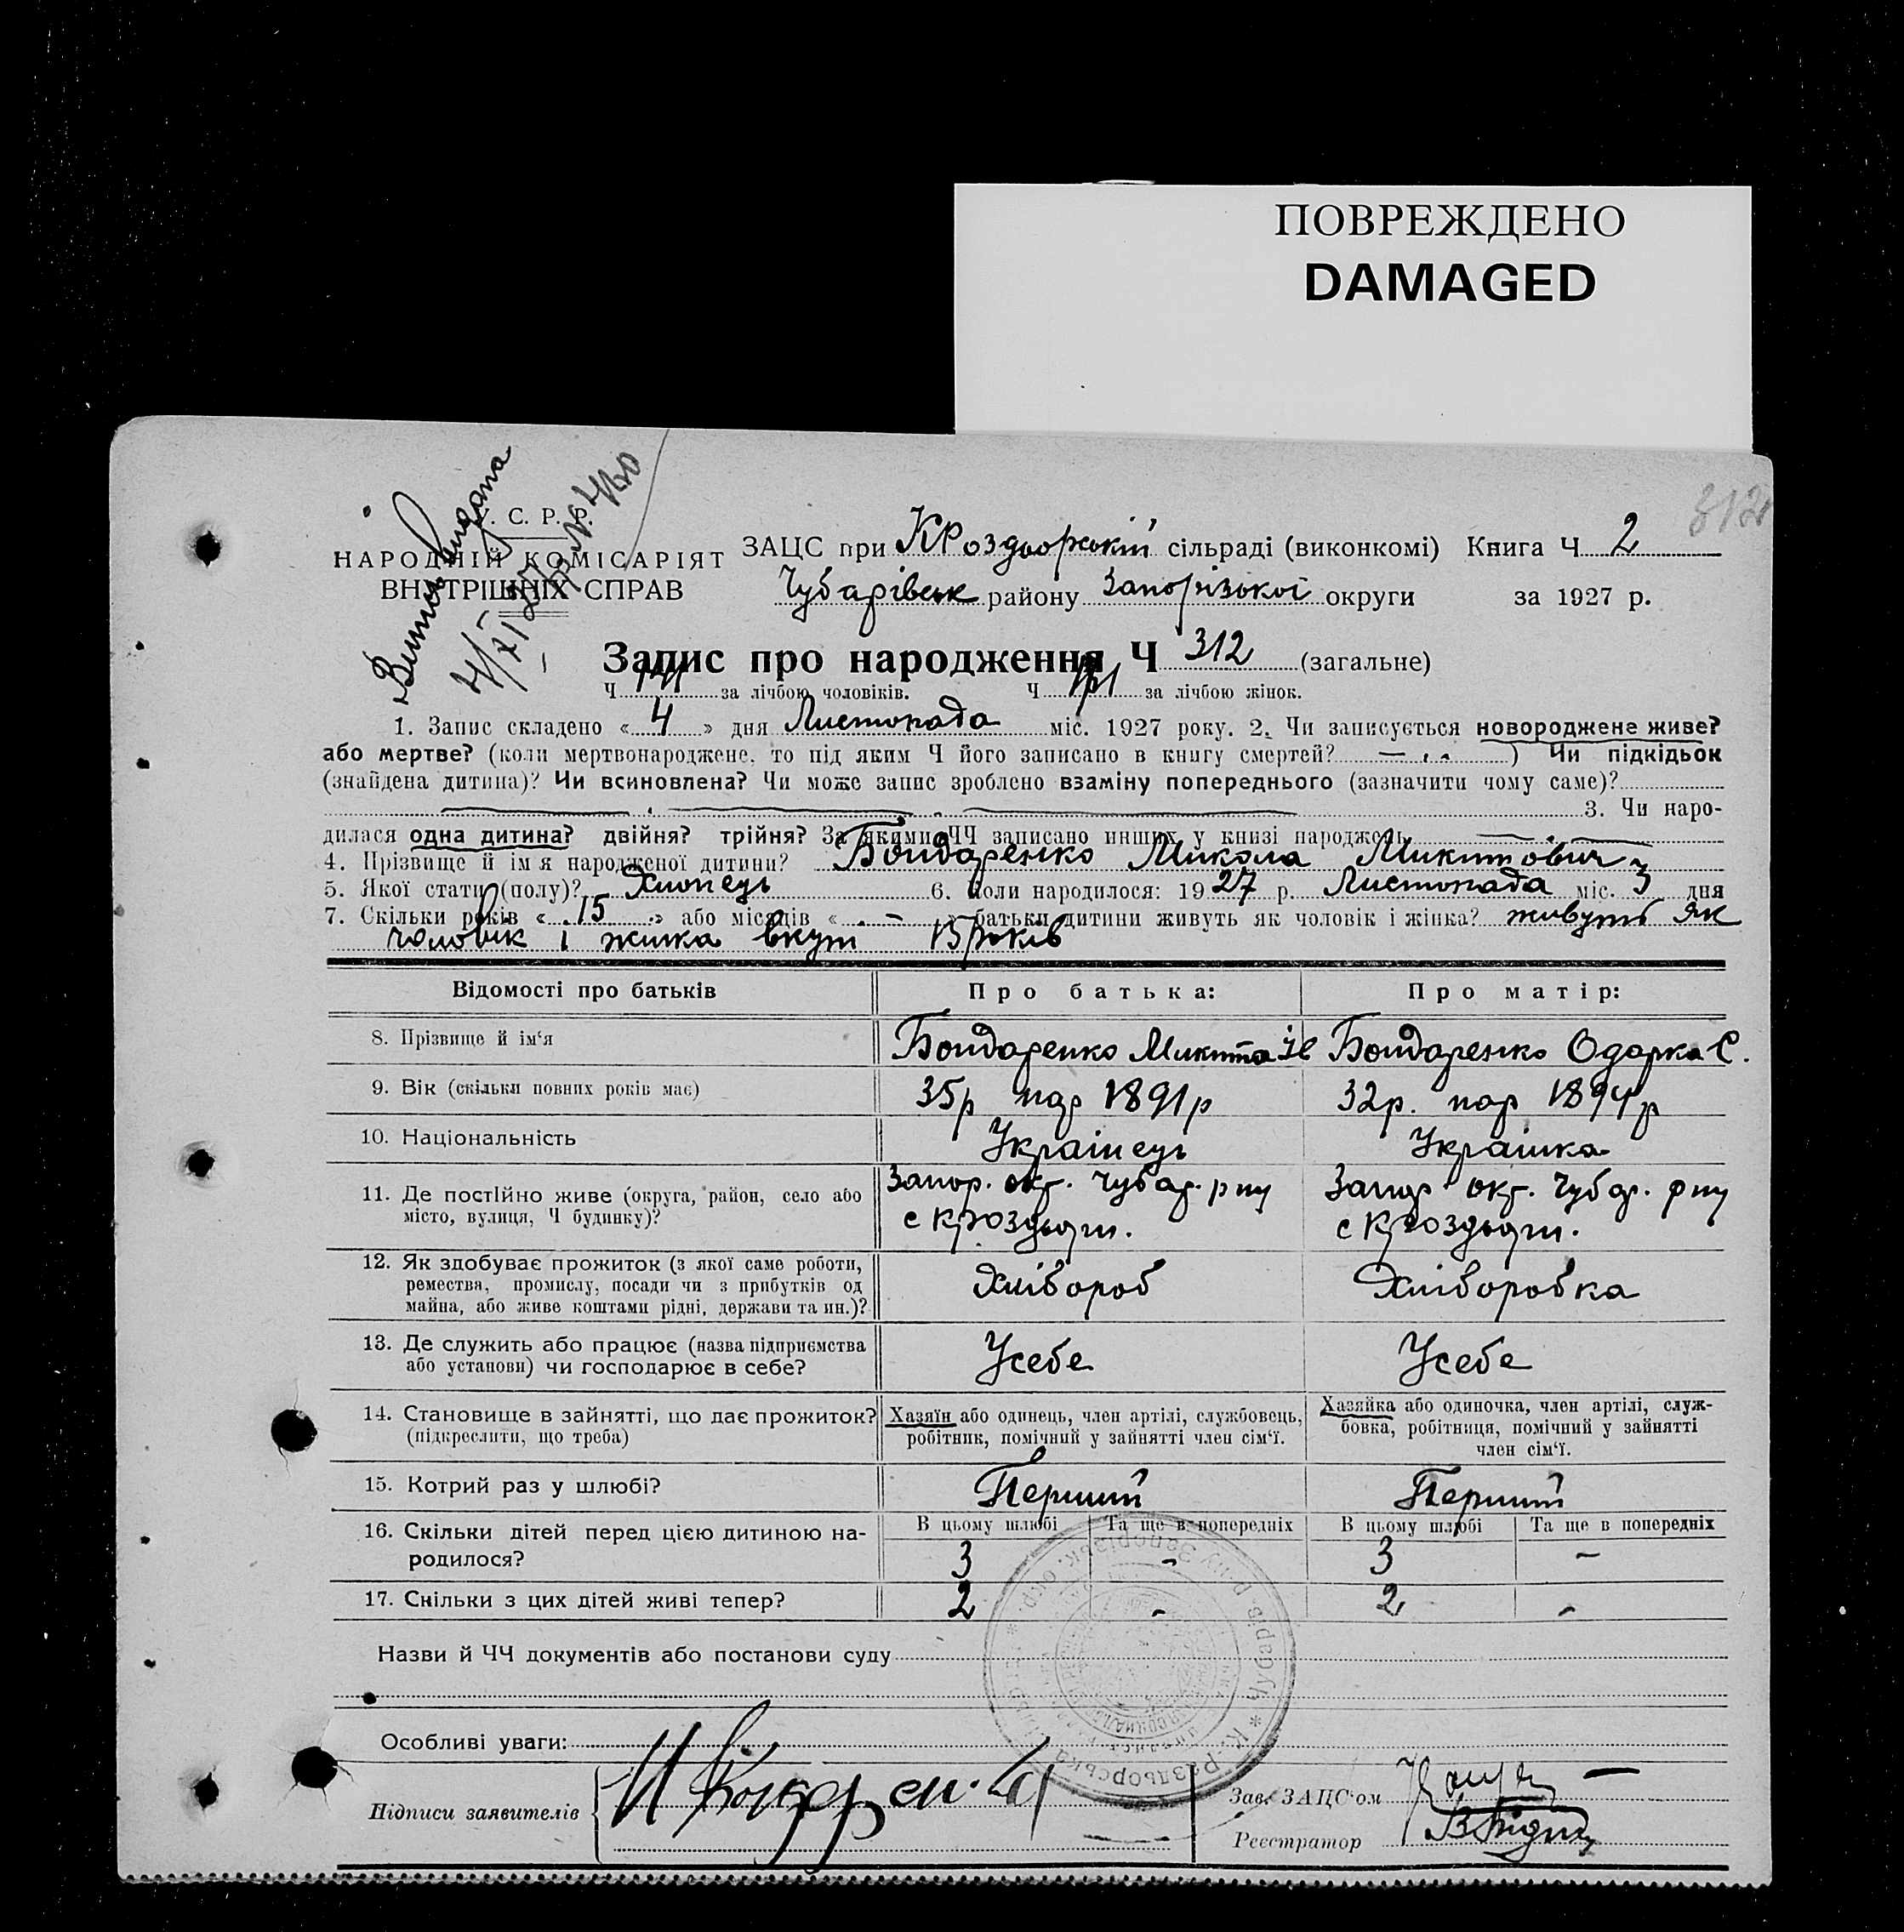 ПОВРЕЖДЕНО
DAMAGED
312
Витяг видана
4/XI 27 р. № 4120
У. С. Р. Р.
НАРОДНІЙ КОМІСАРІЯТ
ВНУТРІШНІХ СПРАВ
ЗАЦС при КРоздорській сільраді (виконкомі) Книга Ч 2
Чубарівськ району Запорізької округи за 1927 р.
Запис про народження Ч 312 (загальне)
Ч за лічбою чоловіків. Ч за лічбою жінок.
1. Запис складено « 4 » дня Листопада міс. 1927 року. 2. Чи записується новороджене живе?
або мертве? (коли мертвонароджене, то під яким Ч його записано в книгу смертей? — ) Чи підкідьок
(знайдена дитина)? Чи всиновлена? Чи може запис зроблено взаміну попереднього (зазначити чому саме)?
3. Чи наро-
дилася одна дитина? двійня? трійня? За якими ЧЧ записано инших у книзі народжень
4. Прізвище й ім я народженої дитини? Бондаренко Микола Микитович
5. Якої статі (полу)? Хлопець 6. Коли народилося: 1927 р. Листопада міс. 3 дня
7. Скільки років « 15 » або місяців « - » батьки дитини живуть як чоловік і жінка? живуть як
чоловік і жинка вкуп 15 років
Відомості про батьків Про батька: Про матір:
8. Прізвище й ім‘я Бондаренко Микита Ів Бондаренко Одарка С.
9. Вік (скільки повних років має) 35р нар 1891р 32р. нар 1894р
10. Національність Українець Українка
11. Де постійно живе (округа, район, село або Запор. окг. Чубар. рну Запор окг. Чубар. рну
місто, вулиця, Ч будинку)? с Кроздори. с Кроздори.
12. Як здобуває прожиток (з якої саме роботи,
ремества, промислу, посади чи з прибутків од Хлібороб Хліборобка
майна, або живе коштами рідні, держави та ин.)?
13. Де служить або працює (назва підприємства Усебе Усебе
або установи) чи господарює в себе?
14. Становище в зайнятті, що дає прожиток? Хазяїн або одинець, член артілі, службовець, Хазяйка або одиночка, член артілі, служ-
(підкреслити, що треба) робітник, помічний у зайнятті член сім‘ї. бовка, робітниця, помічний у зайнятті
член сім‘ї.
15. Котрий раз у шлюбі? Перший Перший
16. Скільки дітей перед цією дитиною на- В цьому шлюбі Та ще в попередніх В цьому шлюбі Та ще в попередніх
родилося? 3 - 3 -
17. Скільки з цих дітей живі тепер? 2 - 2 -
Назви й ЧЧ документів або постанови суду
Особливі уваги:
Підписи заявителів
Зав. ЗАЦС‘ом
Реєстратор